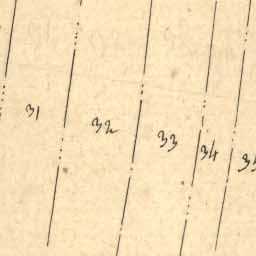 31 32 33 34